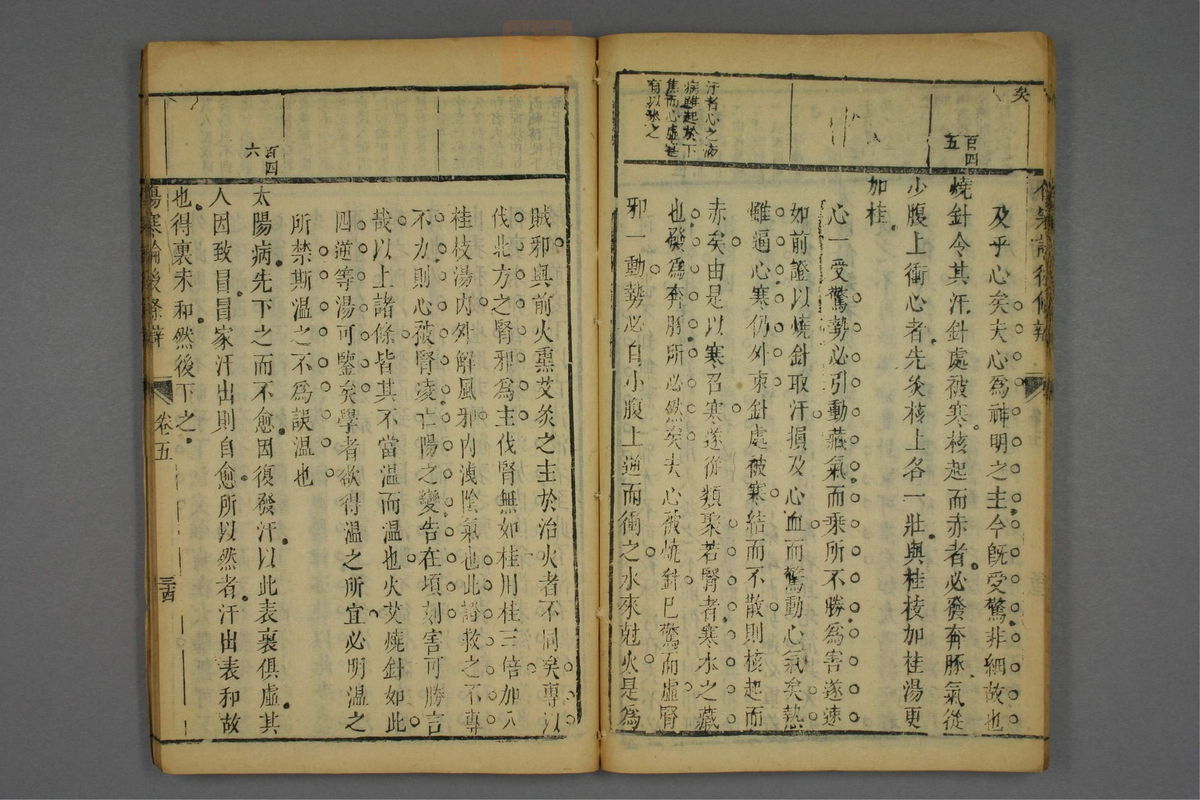 矣
百四
五
汗者心之液
病雖起於下
焦而心虛甚
有以致之
及乎心矣夫心為神明之主今既受驚非細故也
燒針令其汗針處被寒核起而赤者必發奔豚氣從
少腹上衝心者先灸核上各一壯與桂枝加桂湯更
加桂
心一受驚勢必引動藏氣而乘所不勝為害遂速
如前證以燒針取汗損及心血而驚動心氣矣熱
雖逼心寒仍外束針處被寒結而不散則核起而
赤矣由是以寒召寒遂從類聚若腎者寒水之藏
也發為奔豚所必然矣夫心被燒針已驚而虛腎
邪一動勢必自小腹上逆而衝之水來尅火是為
賊邪與前火熏艾灸之主於治火者不同矣專以
伐北方之腎邪為主伐腎無如桂用桂三倍加入
桂枝湯內外解風邪內洩陰氣也此證救之不專
不力則心被腎凌亡陽之變告在頃刻害可勝言
哉以上諸條皆其不當溫而溫也火艾燒針如此
四逆等湯可鑒矣學者欲得溫之所宜必明溫之
所禁斯溫之不為誤溫也
百四
六
太陽病先下之而不愈因復發汗以此表裏俱虛其
人因致冒冒家汗出則自愈所以然者汗出表和故
也得裏未和然後下之
傷寒論後條辨 卷五 三四